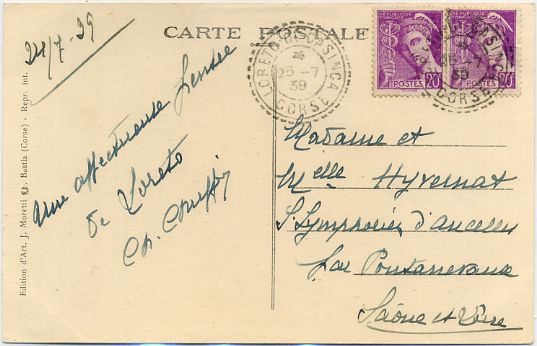 CARTE POSTALE
24/7-39
Une affectueuse pensée
de Loreto
Ch.
Edition d'Art, J. Moretti Bastia (Corse) - Repr. int.
LORETO-DI-CASINCA
25-7
39
CORSE
20 POSTES
POSTES 20
25-7
39
CORSE
Madame et
Melle Hyvernat
St Symphorien d'Ancelles
par Pontanevaux
Saône et Loire